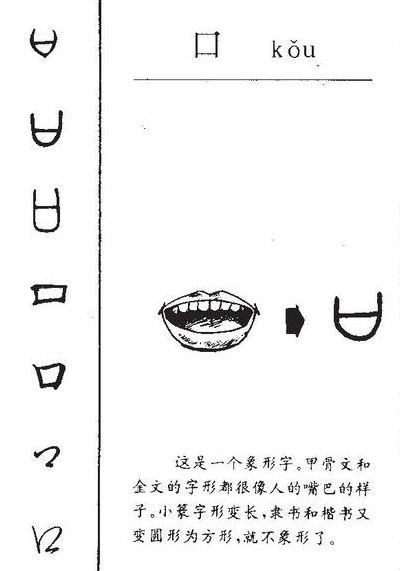 口 kǒu
这是一个象形字。甲骨文和
金文的字形都很像人的嘴巴的样
子。小篆字形变长,隶书和楷书又
变圆形为方形,就不象形了。